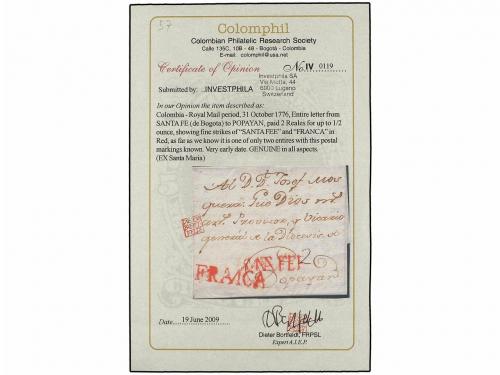 57
Colomphil
Colombian Philatelic Research Society
Calle 135C, 10B - 48 - Bogotá - Colombia
E-mail: colomphil@usa.net
Certificate of Opinion
No. IV 0119
Submitted by: INVESTPHILA
Investphila SA
Via Motta, 44
6900 Lugano
Switzerland
In our Opinion the item described as:
Colombia - Royal Mail period, 31 October 1776, Entire letter from
SANTA FE (de Bogota) to POPAYAN, paid 2 Reales for up to 1/2
ounce, showing fine strikes of "SANTA FEE" and "FRANCA" in
Red, as far as we know it is one of only two entires with this postal
markings known. Very early date. GENUINE in all aspects.
(EX Santa Maria)
Al D. D. Josef Mos
quera
Provisor, y Vicario
general de la Diocesis de
2
FRANCA
Popayan
Date 19 June 2009
Dieter Bortfeldt, FRPSL
Expert A.I.E.P.